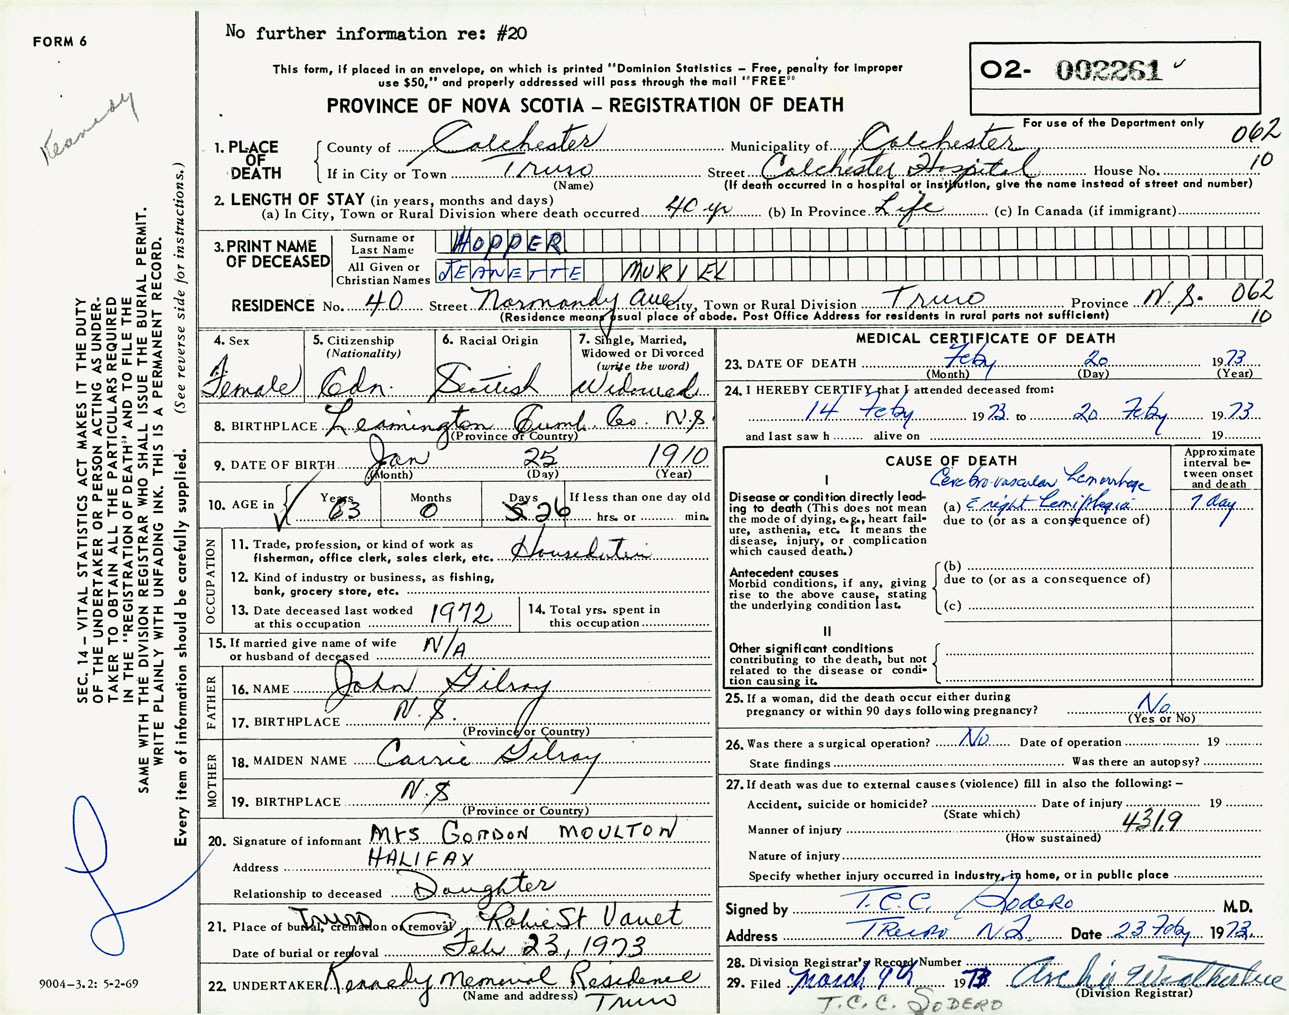 No further information re: #20
FORM 6
This form, if placed in an envelope, on which is printed "Dominion Statistics – Free, penalty for improper
use $50," and properly addressed will pass through the mail "FREE"
O2- 002261
PROVINCE OF NOVA SCOTIA – REGISTRATION OF DEATH
For use of the Department only
Kennedy
062
10
1. PLACE OF DEATH
County of Colchester Municipality of Colchester
If in City or Town Truro Street Colchester Hospital House No.
(Name) (If death occurred in a hospital or institution, give the name instead of street and number)
2. LENGTH OF STAY (in years, months and days)
(a) In City, Town or Rural Division where death occurred 40 yr (b) In Province Life (c) In Canada (if immigrant)
3. PRINT NAME OF DECEASED
Surname or Last Name HOPPER
All Given or Christian Names JEANETTE MURIEL
RESIDENCE No. 40 Street Normandy Ave City, Town or Rural Division Truro Province N.S. 062
(Residence means usual place of abode. Post Office Address for residents in rural parts not sufficient) 10
4. Sex
Female
5. Citizenship (Nationality)
Cdn.
6. Racial Origin
Scottish
7. Single, Married, Widowed or Divorced (write the word)
Widowed
8. BIRTHPLACE Leamington Cumb. Co. N.S.
(Province or Country)
9. DATE OF BIRTH Jan 25 1910
(Month) (Day) (Year)
10. AGE in Years 63 Months 0 Days 26 If less than one day old
hrs. or min.
OCCUPATION
11. Trade, profession, or kind of work as
fisherman, office clerk, sales clerk, etc.
12. Kind of industry or business, as fishing,
bank, grocery store, etc.
13. Date deceased last worked
at this occupation 1972
14. Total yrs. spent in
this occupation
15. If married give name of wife
or husband of deceased N/A
FATHER
16. NAME John Gilroy
17. BIRTHPLACE N.S.
(Province or Country)
MOTHER
18. MAIDEN NAME Carrie Gilroy
19. BIRTHPLACE N.S
(Province or Country)
20. Signature of informant MRS GORDON MOULTON
Address HALIFAX
Relationship to deceased Daughter
21. Place of burial, cremation or removal Truro Robie St Vault
Date of burial or removal Feb 23, 1973
22. UNDERTAKER Kennedy Memorial Residence
(Name and address) Truro
MEDICAL CERTIFICATE OF DEATH
23. DATE OF DEATH Feby 20 1973
(Month) (Day) (Year)
24. I HEREBY CERTIFY that I attended deceased from:
14 Feby 1973 to 20 Feby 1973
and last saw h alive on 19
CAUSE OF DEATH
Approximate interval between onset and death
I
Cerebro-vascular hemorrhage
Disease or condition directly lead-
ing to death (This does not mean
the mode of dying, e.g., heart fail-
ure, asthenia, etc. It means the
disease, injury, or complication
which caused death.)
(a) c right hemiplegia 7 day
due to (or as a consequence of)
Antecedent causes
Morbid conditions, if any, giving
rise to the above cause, stating
the underlying condition last.
(b)
due to (or as a consequence of)
(c)
II
Other significant conditions
contributing to the death, but not
related to the disease or condi-
tion causing it.
25. If a woman, did the death occur either during
pregnancy or within 90 days following pregnancy? No
(Yes or No)
26. Was there a surgical operation? No Date of operation 19
State findings Was there an autopsy?
27. If death was due to external causes (violence) fill in also the following: –
Accident, suicide or homicide? Date of injury 19
(State which)
Manner of injury 4319
(How sustained)
Nature of injury
Specify whether injury occurred in industry, in home, or in public place
Signed by T.C.C. Sodero M.D.
Address TRURO N.S. Date 23 Feby 1973
28. Division Registrar's Record Number
29. Filed March 9th 1973 Archie
(Division Registrar)
T.C.C. SODERO
SEC. 14 – VITAL STATISTICS ACT MAKES IT THE DUTY
OF THE UNDERTAKER OR PERSON ACTING AS UNDER-
TAKER TO OBTAIN ALL THE PARTICULARS REQUIRED
IN THE "REGISTRATION OF DEATH" AND TO FILE THE
SAME WITH THE DIVISION REGISTRAR WHO SHALL ISSUE THE BURIAL PERMIT.
WRITE PLAINLY WITH UNFADING INK. THIS IS A PERMANENT RECORD.
Every item of information should be carefully supplied. (See reverse side for instructions.)
9004–3.2: 5-2-69